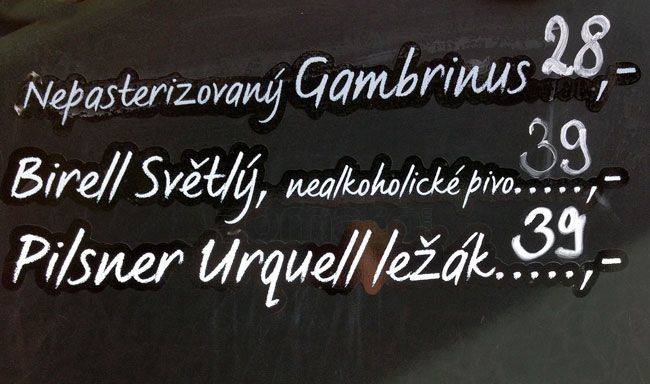 Nepasterizovaný Gambrinus 28,-
Birell Světlý, nealkoholické pivo.....39,-
Pilsner Urquell ležák.....39,-